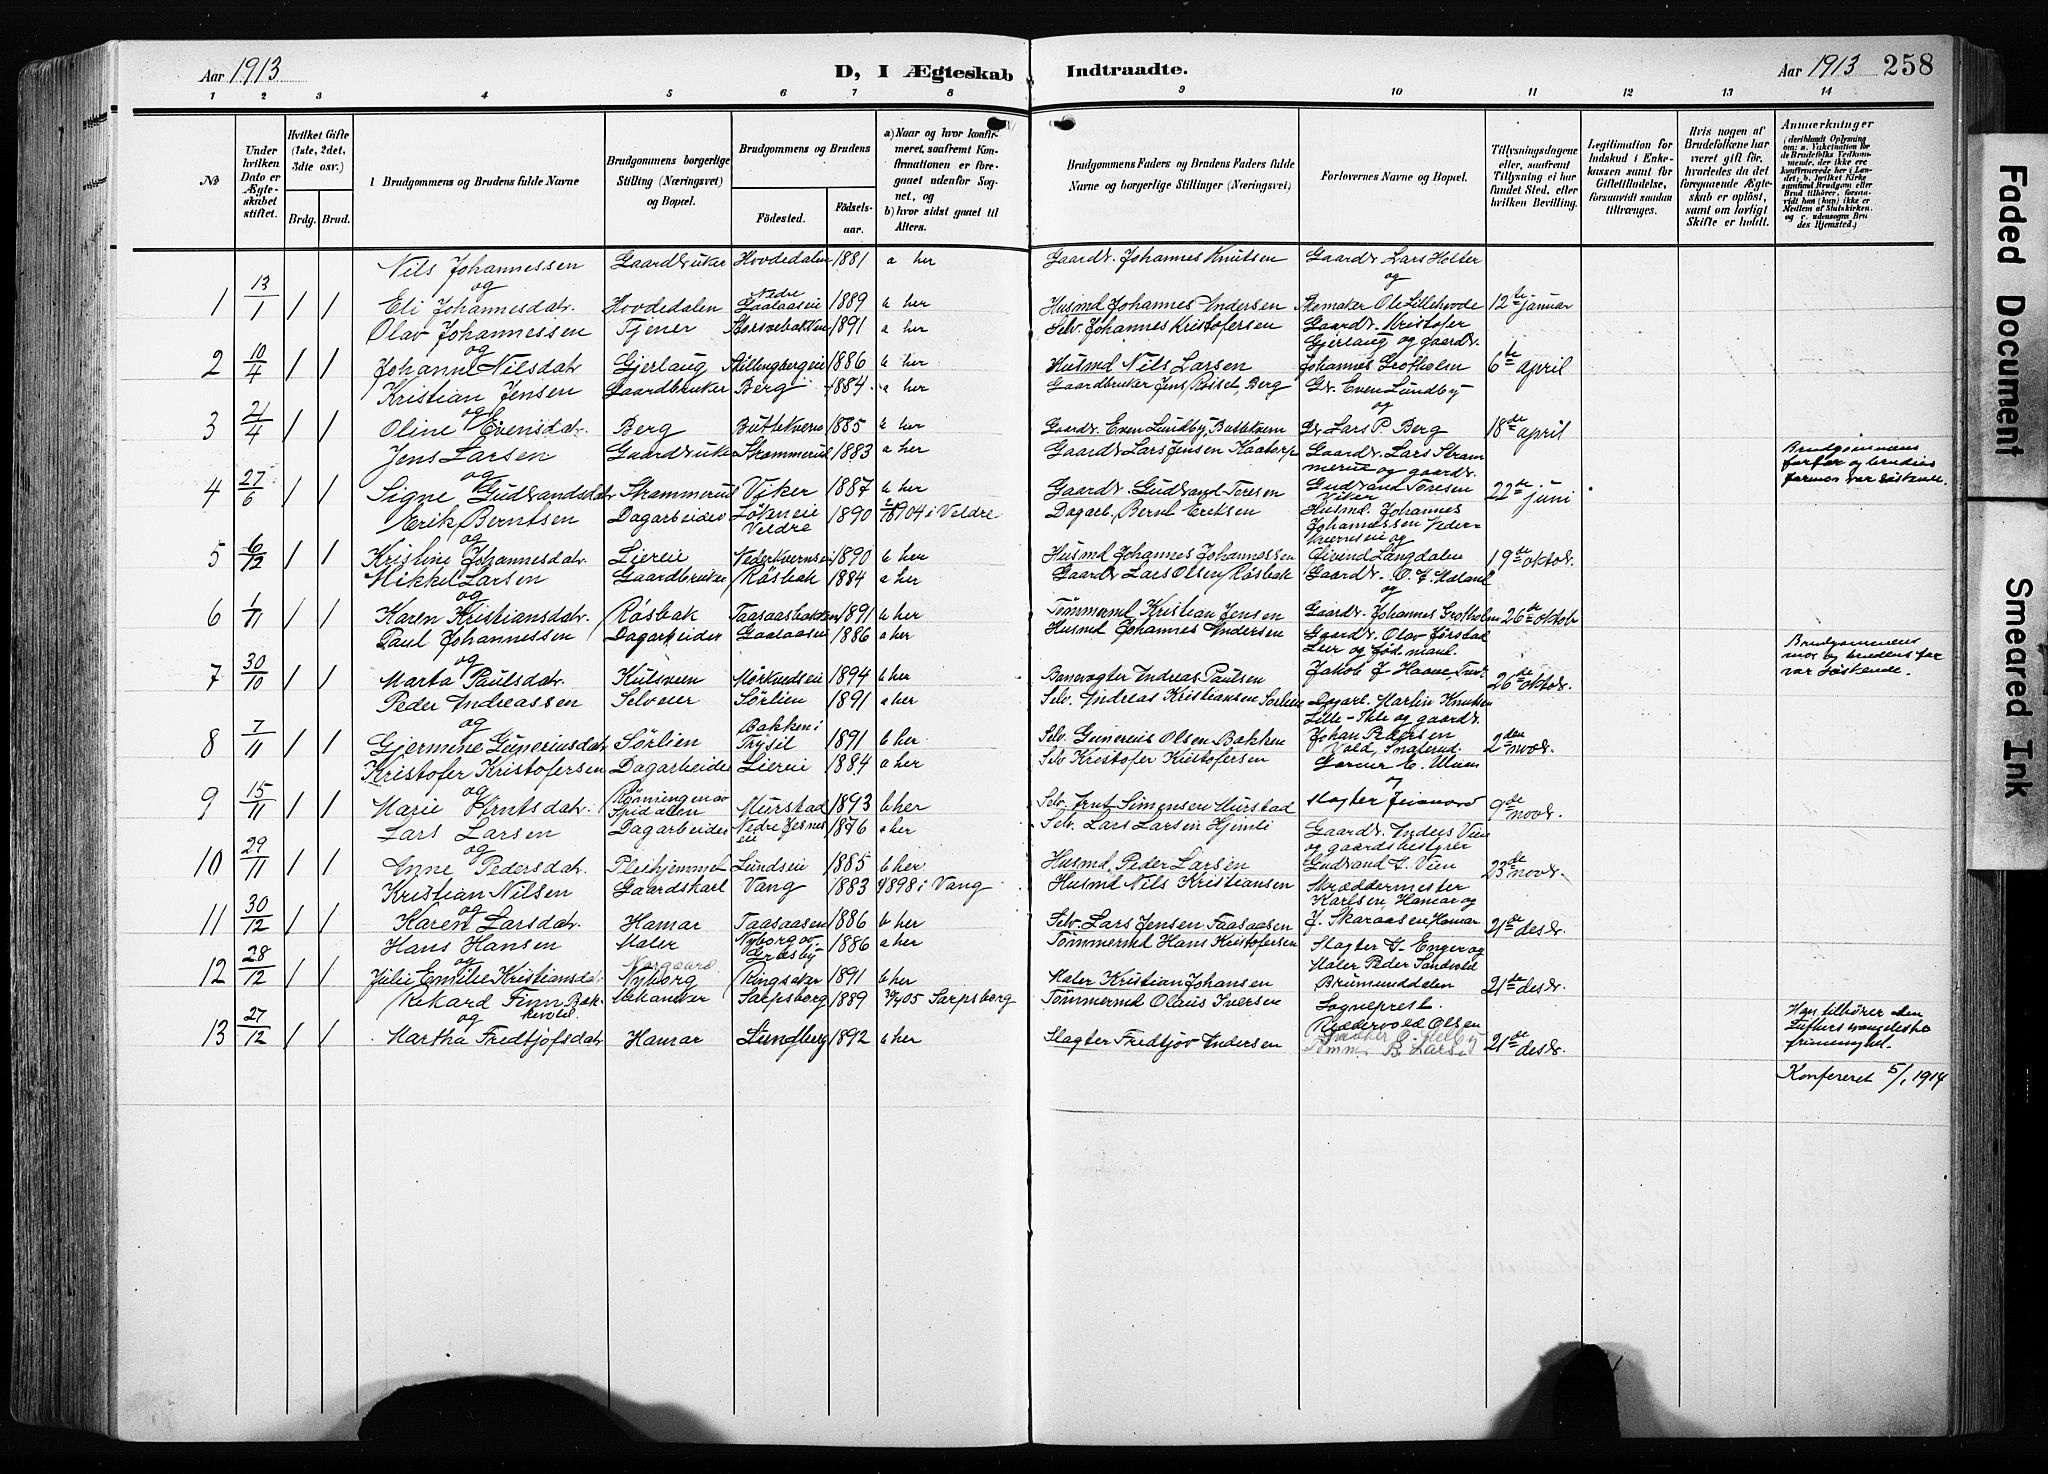 Aar 1913
D, I Ægteskab Indtraadte.
Aar 1913 258
1 2 3 4 5 6 7 8 9 10 11 12 13 14
No
Under hvilken Dato er Ægteskabet stiftet.
Hvilket Gifte (1ste, 2det, 3die osv.)
Brdg. Brud.
Brudgommens og Brudens fulde Navne
Brudgommens borgerlige Stilling (Næringsvei) og Bopæl.
Brudgommens og Brudens
Födested.
Födselsaar.
a) Naar og hvor konfirmeret, saafremt Konfirmationen er foregaaet udenfor Sognet, og
b) hvor sidst gaaet til Alters.
Brudgommens Faders og Brudens Faders fulde Navne og borgerlige Stillinger (Næringsvei)
Forlovernes Navne og Bopæl.
Tillysningsdagene eller, saafremt Tillysning ei har fundet Sted, efter hvilken Bevilling.
Legitimation for Indskud i Enkekassen samt for Giftetilladelse, forsaavidt saadan tiltrænges.
Hvis nogen af Brudefolkene har været gift før, hvorledes da det foregaaende Ægteskab er oplöst, samt om lovligt Skifte er holdt.
Anmærkninger
Nils Johannessen Gaardbruker Hovdedalen 1881 a her Gaardbr. Johannes Knutsen Gaardbr. Lars Holter
og og
1 13/1 1 1 Eli Johannesdatr Hovdedalen Nedre Gaalaaseie 1889 b her Husmd Johannes Andersen Skomaker Ole Lillehovde 12te januar
Olav Johannessen Tjener Storsvebakken 1891 a her Selv. Johannes Kristofersen Gaardbr. Kristofer
og Gjerlaug og gaardbr.
2 10/4 1 1 Johanne Nilsdatr Gjerlaug 1886 b her Husmd Nils Larsen Johannes Grotholm 6te april
Kristian Jensen Gaardbruker Berg 1884 a her Gaardbruker Jens Røiset, Berg Gr. Even Lundby
og og
3 21/4 1 1 Oline Evensdatr. Berg Buttekvern 1885 b her Gaardbr. Even Lundby, Buttekvern Gr. Lars P. Berg 18de april
Jens Larsen Gaardbruker Strammerud 1883 a her Gaardbr Lars Jensen Gaardbr. Lars Strammerud og gaardbr. Brudgommens farfar og brudens farmor var søskende.
og
4 27/6 1 1 Signe Gudbrandsdatr Strammerud Viker 1887 b her Gaardbr. Gudbrand Toresen Gudbrand Toresen Viker 22de juni
Erik Berntsen Dagarbeider Løkneie Veldre 1890 1904 i Veldre Dagarb. Bernt Eriksen Husmd. Johannes Johannessen
og
5 6/12 1 1 Kristine Johannesdatr Liereie 1890 b her Husmd Johannes Johannessen Eivind Langdalen 19de oktobr.
Mikkel Larsen Gaardbruker Røsbak 1884 a her Gaardbr Lars Olsen Røsbak Gaardbr.
og og
6 1/11 1 1 Karen Kristiansdatr Røsbak Taasaasbakken 1891 b her Tømmermd Kristian Jensen Gaardbr. Johannes Grotholm 26de oktobr
Paul Johannessen Dagarbeider Gaalaasen 1886 a her Husmd Johannes Andersen Gaardbr. Olav Jørstad Brudgommens mor og brudens far var søskende.
og
7 30/10 1 1 Marta Paulsdatr. Kulsveen 1894 b her Banevogter Andreas Paulsen Jakob J. Haave 26de oktobr.
Peder Andreassen Selveier Sørlien 1891 a her Selv. Andreas Kristiansen Sørlien Dagarb. Martin Knutsen
og Lille-Ihle og gaardbr.
8 7/11 1 1 Gjermine Guneriusdatr Sørlien Bakken i Trysil 1891 b her. Selv. Gunerius Olsen Bakken Johan Pedersen 2den novbr.
Kristofer Kristofersen Dagarbeider Liereie 1884 a her Selv Kristofer Kristofersen Garver
og og
9 15/11 1 1 Marie Knutsdatr. Rønningen av Spidalen Murstad 1893 b her Selv. Knut Simensen Murstad Slagter 9de novbr.
Lars Larsen Dagarbeider Nedre Jesneseie 1876 a her Selv. Lars Larsen Hjemli Gaardbr. Anders Vien
og og gaardsbestyrer
10 29/11 1 1 Anne Pedersdatr. Pleiehjemmet Lundseie 1885 b her Husmd. Peder Larsen Gudbrand G. Vien 23de novbr.
Kristian Nilsen Gaardskarl Vang 1883 1898 i Vang Husmd Nils Kristiansen Skræddermester
og Karlsen, Hamar og
11 30/12 1 1 Karen Larsdatr. Hamar Taasaasen 1886 b her Selv. Lars Jensen Taasaasen J. Skaraasen, Hamar 21de desbr.
Hans Hansen Maler Nyborg av Græsby 1886 a her Tømmermd Hans Kristofersen Slagter G. Enger og
og Maler Peder Sandvold
12 28/12 1 1 Julie Emilie Kristiansdatr. Nyborg Ringsaker 1891 b her Maler Kristian Johansen Brumunddalen 21de desbr.
Rikard Finn Bakkevold Mekaniker Sarpsborg 1889 1905 Sarpsborg Tømmermd Olaus Iversen Sogneprest
og Olsen
13 27/12 1 1 Martha Fredtjofsdatr Hamar Lundberg 1892 b her Slagter Fredtjov Andersen 21de desbr.
Han tilhører den Luthers evangeliske frimenighet.
Konfereret 5/1 1914
Faded Document
Smeared Ink